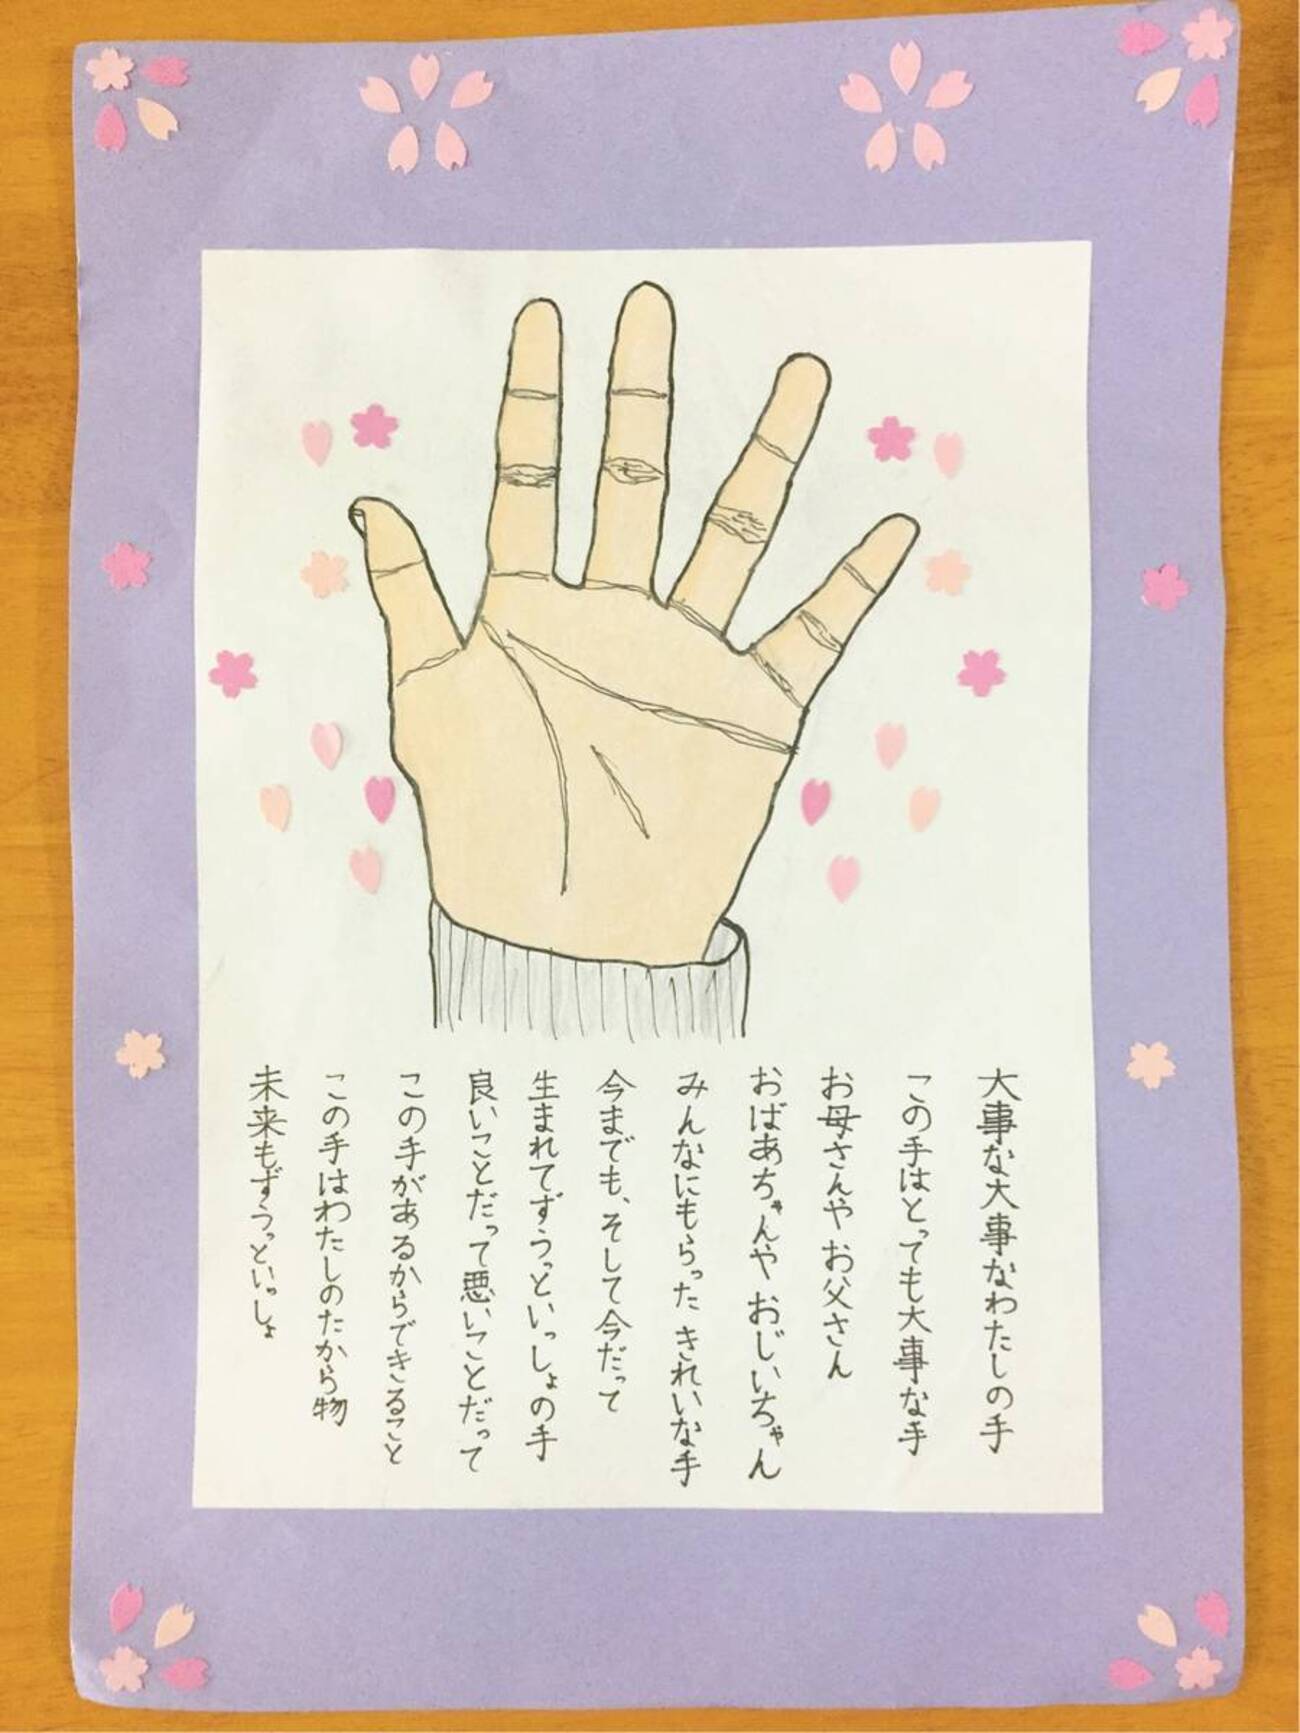 大事な大事なわたしの手
この手はとっても大事な手
お母さんや お父さん
おばあちゃんや おじいちゃん
みんなにもらった きれいな手
今までも、そして今だって
生まれてずうっといっしょの手
良いことだって悪いことだって
この手があるからできること
この手はわたしのたから物
未来もずうっといっしょ